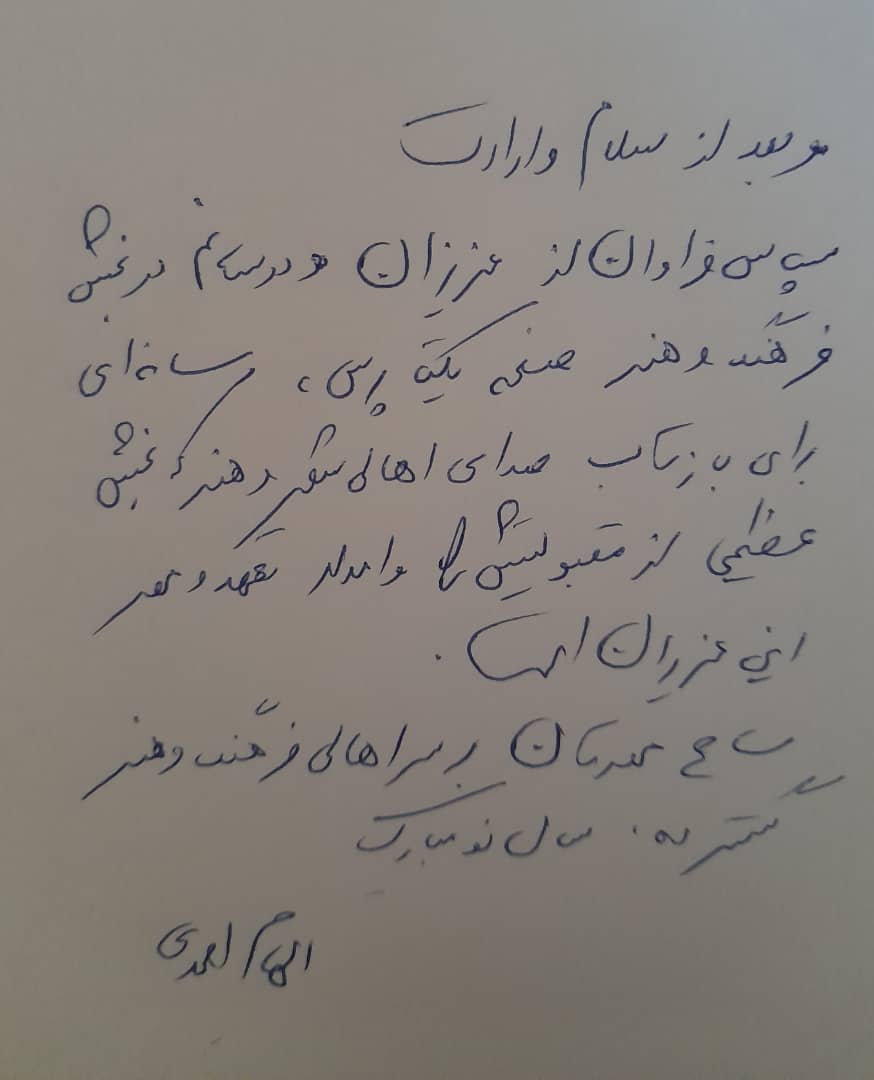 و بعد از سلام و ارادت
سپاس فراوان از عزیزان و دوستانم در بخش
فرهنگ و هنر صفحه یکتا پرس، رسانه‌ای
برای بازتاب صدای اهالی شعر و هنر که بخش
عظیمی از مقبولیتش را وامدار تعهد و مهر
این عزیزان است.
سایه مهرتان بر سر اهالی فرهنگ و هنر
گسترده. سال نو مبارک
الهام احمدی